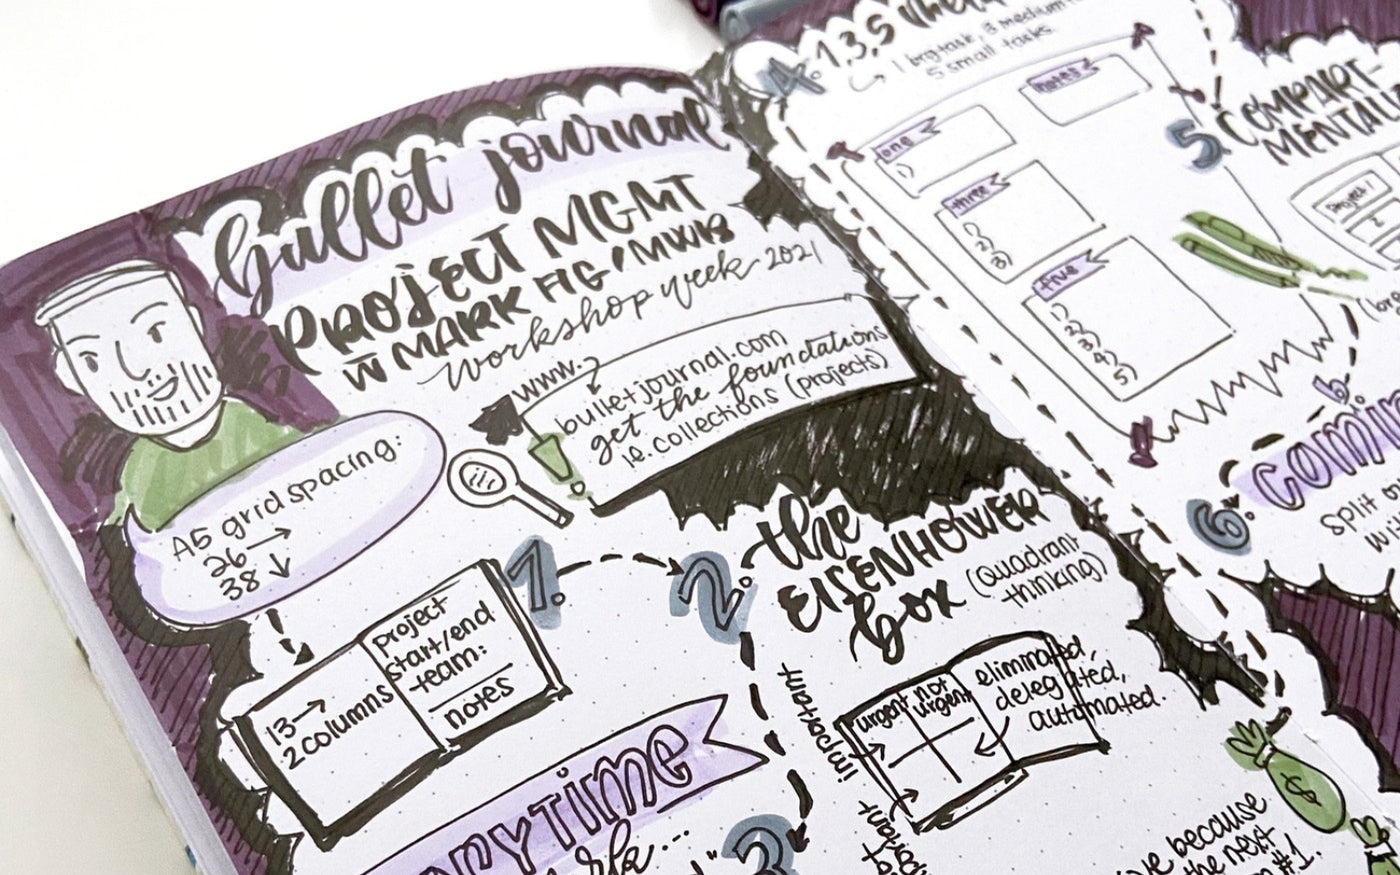 bullet journal
PROJECT MGMT
W MARK FIG / MWB
workshop week 2021
www.
bulletjournal.com
get the foundations
ie. collections (projects)
A5 grid spacing:
26 →
38 ↓
1.
13 →
2 columns
project
start/end
team:
notes
2.
the
EISENHOWER
box
(quadrant
thinking)
important
urgent
not
urgent
eliminated,
delegated,
automated.
3
because
the next
#1.
$
4.
1, 3, 5
1 big task, 3 medium
5 small tasks.
notes
one
1)
three
1)
2)
3)
five
1)
2)
3)
4)
5)
5.
COMPART-
project 1
2
6.
split